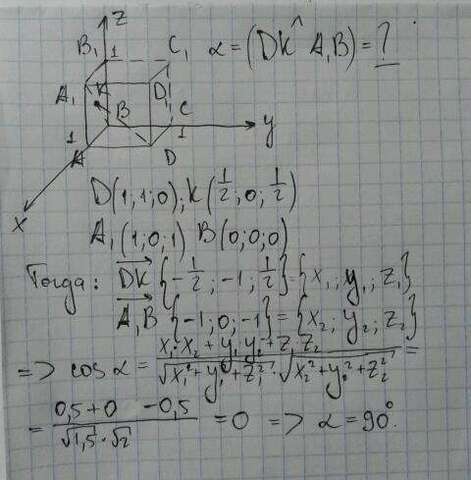 Z
B₁ 1 C₁ α = (DK ^ A₁B) = ?
A₁ K D₁
B C
1 1 y
A D
x
D(1; 1; 0), K(1/2; 0; 1/2)
A₁(1; 0; 1) B(0; 0; 0)
Тогда: DK {-1/2; -1; 1/2} = {x₁; y₁; z₁}
A₁B {-1; 0; -1} = {x₂; y₂; z₂}
=> cos α = (x₁·x₂ + y₁y₂ + z₁z₂) / (√(x₁² + y₁² + z₁²) · √(x₂² + y₂² + z₂²)) =
= (0,5 + 0 - 0,5) / (√1,5 · √2) = 0 => α = 90°.